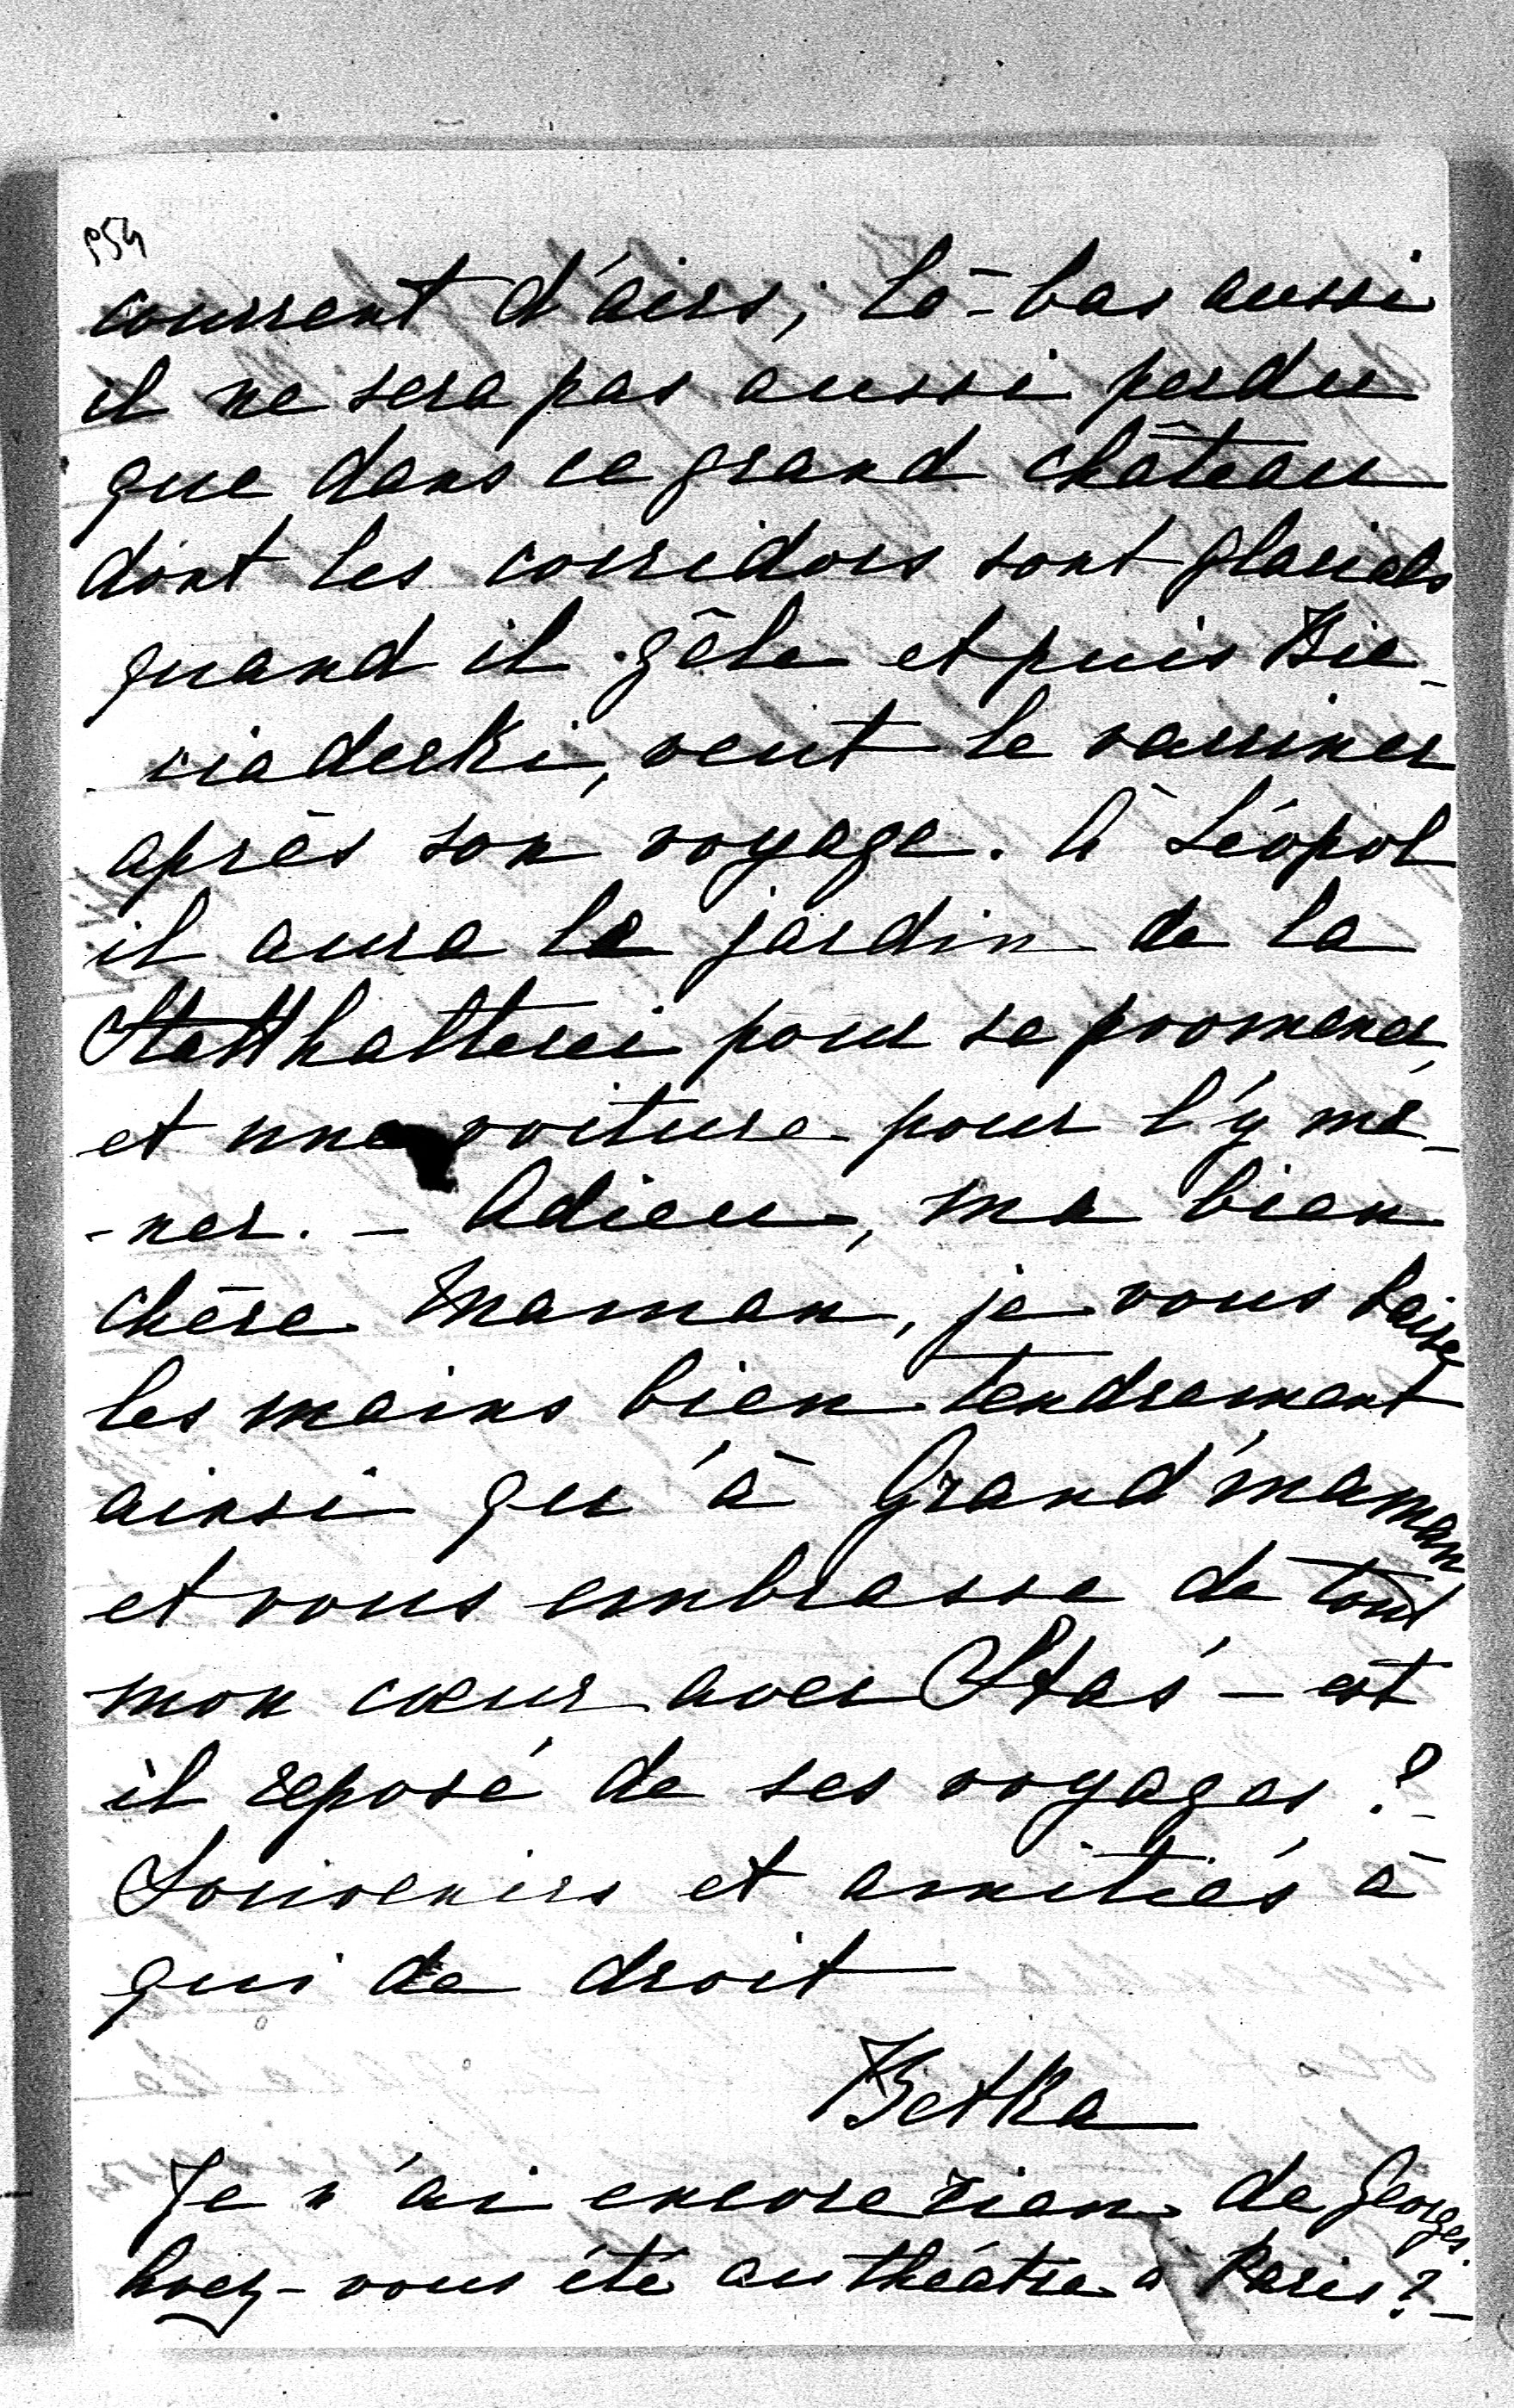 954
courrent d'airs; là-bas aussi
il ne sera pas aussi perdu
que dans ce grand château
dont les corridors sont glacials
quand il gêle et puis Bie-
siadecki, veut le vacciner
après son voyage. À Léopol
il aura le jardin de la
Statthalterei pour se promener,
et une voiture pour l'y me-
-ner. – Adieu, ma bien
chère Maman, je vous baise
les mains bien tendrement
ainsi qu'à Grand'maman
et vous embrasse de tout
mon cœur avec Staś – est
il reposé de ses voyages ? –
Souvenirs et amitiés à
qui de droit
Betka
Je n'ai encore rien de Georges.
Avez-vous été au théâtre à Paris ? –